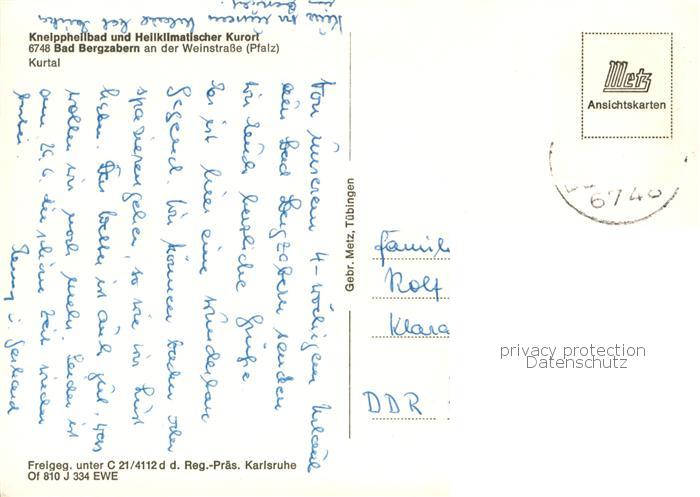 Kneippheilbad und Heilklimatischer Kurort
6748 Bad Bergzabern an der Weinstraße (Pfalz)
Kurtal
Von unserem 4-wöchigem Urlaub
aus Bad Bergzabern senden
wir Euch herzliche Grüße
Es ist hier eine wunderbare
Gegend. Wir können baden oder
spazierengehen, so wie wir Lust
haben. Das Wetter ist auch gut, was
wollen wir noch mehr. Leider ist
am 26.6. die schöne Zeit wieder
vorbei.
u. Gerhard
Gebr. Metz, Tübingen
Metz
Ansichtskarten
6740
Famil
Rolf
Klara
DDR
privacy protection
Datenschutz
Freigeg. unter C 21/4112 d d. Reg.-Präs. Karlsruhe
Of 810 J 334 EWE